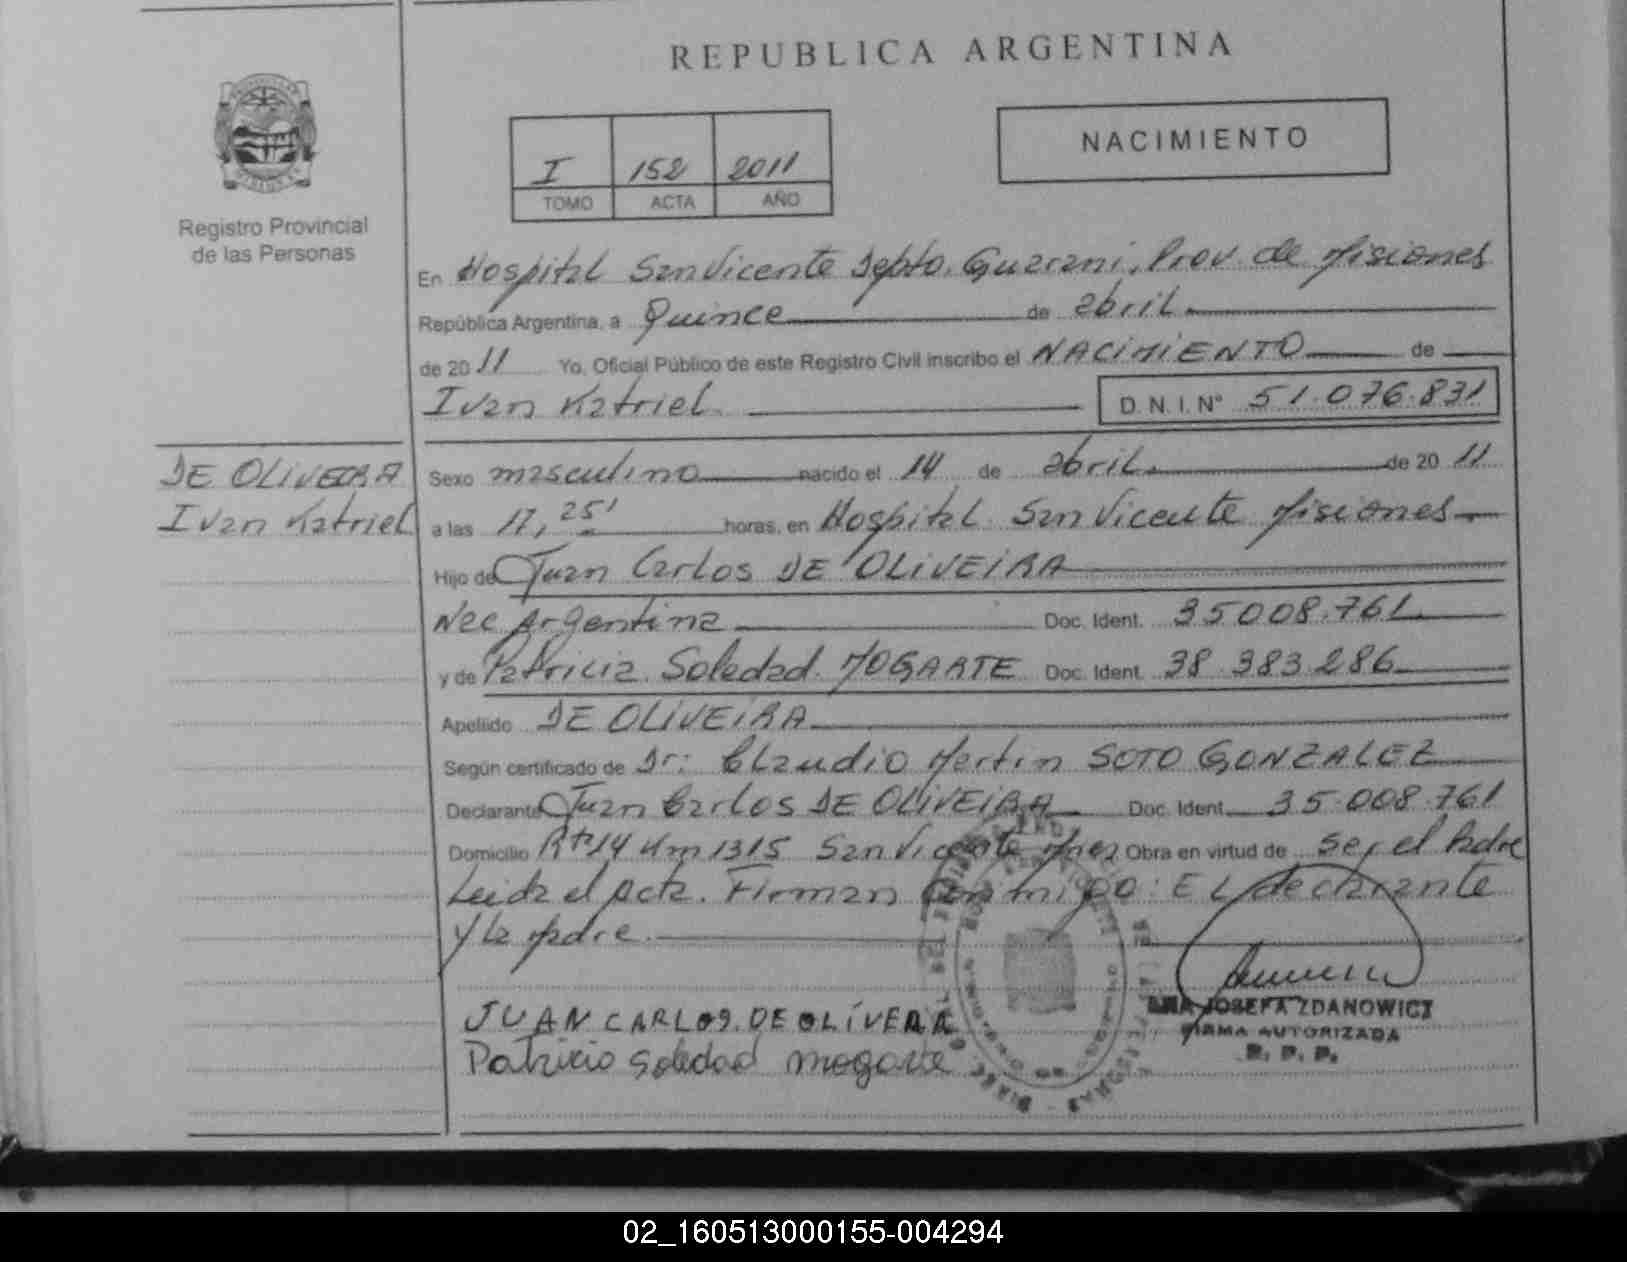 REPUBLICA ARGENTINA
NACIMIENTO
I 152 2011
TOMO ACTA AÑO
Registro Provincial
de las Personas
En Hospital San Vicente Depto. Guarani, Prov. de Misiones
República Argentina, a Quince de abril
de 2011 Yo, Oficial Público de este Registro Civil inscribo el NACIMIENTO de
Ivan Katriel D.N.I. N° 51.076.831
DE OLIVEIRA
Ivan Katriel
Sexo masculino nacido el 14 de abril de 2011
a las 17,25' horas, en Hospital San Vicente Misiones
Hijo de Juan Carlos DE OLIVEIRA
Nac Argentina Doc. Ident. 35 008.761
y de Patricia Soledad MOGARTE Doc. Ident. 38 383 286
Apellido DE OLIVEIRA
Según certificado de Dr: Claudio Martin SOTO GONZALEZ
Declarante Juan Carlos DE OLIVEIRA Doc. Ident. 35.008.761
Domicilio Rta 14 Km 1315 San Vicente Mnes Obra en virtud de ser el Padre
Leida el Acta. Firman conmigo: EL declarante
y la madre.
JUAN CARLOS DE OLÍVERA
Patricia Soledad Mogarte
ANA JOSEFA ZDANOWICZ
FIRMA AUTORIZADA
R. P. P.
02_160513000155-004294